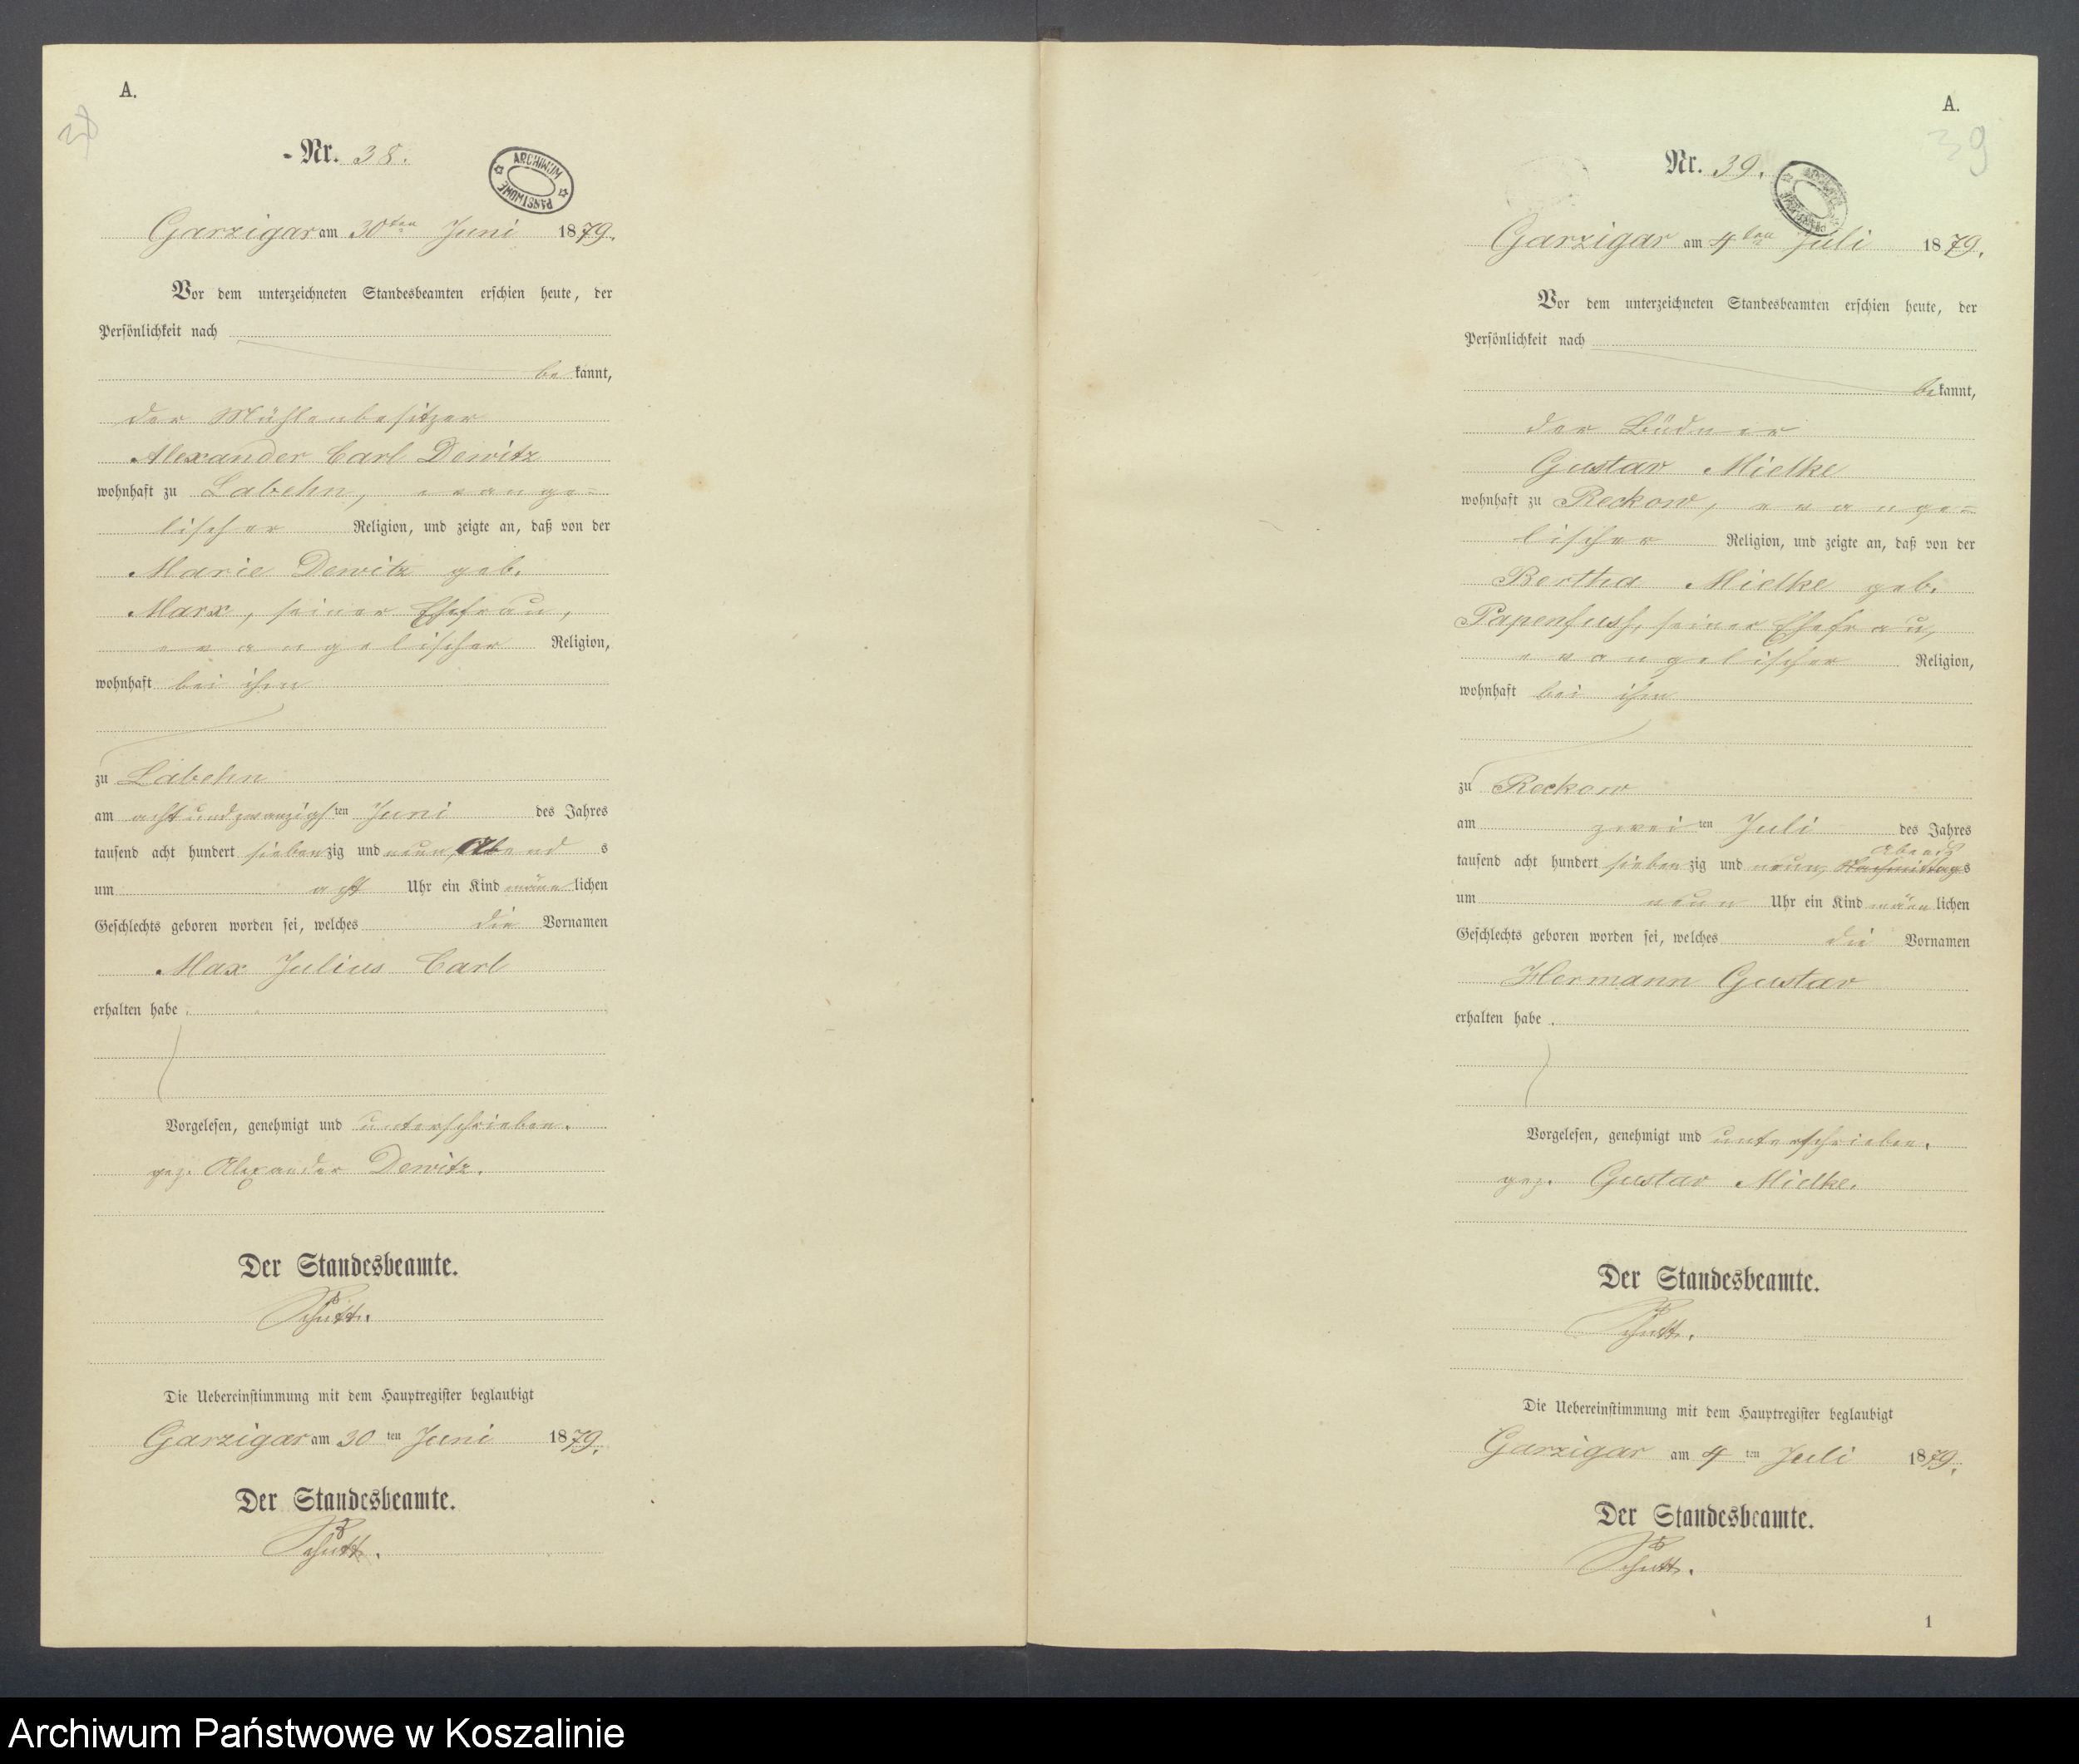 A.
38
Nr. 38.
ARCHIWUM PAŃSTWOWE
Garzigar am 30ten Juni 1879.
Vor dem unterzeichneten Standesbeamten erschien heute, der
Persönlichkeit nach
bekannt,
der Mühlenbesitzer
Alexander Carl Dewitz
wohnhaft zu Labehn, evange=
lischer Religion, und zeigte an, daß von der
Marie Dewitz geb.
Marx, seiner Ehefrau,
evangelischer Religion,
wohnhaft bei ihm
zu Labehn
am achtundzwanzigsten Juni des Jahres
tausend acht hundert siebenzig und neun, Abends
um acht Uhr ein Kind männlichen
Geschlechts geboren worden sei, welches die Vornamen
Max Julius Carl
erhalten habe.
Vorgelesen, genehmigt und unterschrieben.
gez. Alexander Dewitz.
Der Standesbeamte.
Schütt.
Die Uebereinstimmung mit dem Hauptregister beglaubigt
Garzigar am 30ten Juni 1879.
Der Standesbeamte.
Schütt.
A.
39
Nr. 39.
Garzigar am 4ten Juli 1879.
Vor dem unterzeichneten Standesbeamten erschien heute, der
Persönlichkeit nach
bekannt,
der Büdner
Gustav Mielke
wohnhaft zu Reckow, evange=
lischer Religion, und zeigte an, daß von der
Bertha Mielke geb.
Papenfuss, seiner Ehefrau,
evangelischer Religion,
wohnhaft bei ihm
zu Reckow
am zweiten Juli des Jahres
Abends
tausend acht hundert siebenzig und neun, Nachmittags
um neun Uhr ein Kind männlichen
Geschlechts geboren worden sei, welches die Vornamen
Hermann Gustav
erhalten habe.
Vorgelesen, genehmigt und unterschrieben.
gez. Gustav Mielke.
Der Standesbeamte.
Schütt.
Die Uebereinstimmung mit dem Hauptregister beglaubigt
Garzigar am 4ten Juli 1879.
Der Standesbeamte.
Schütt.
1
Archiwum Państwowe w Koszalinie